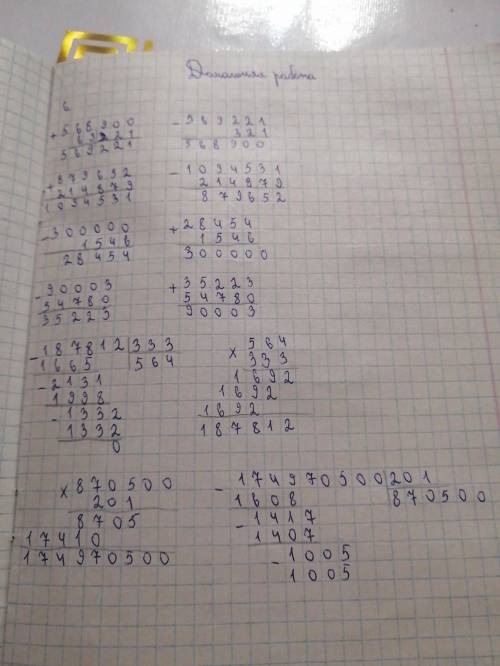 Домашняя работа
6
+ 568900
321
569221
- 569221
321
568900
+ 879652
214879
1094531
- 1094531
214979
879652
- 300000
1546
28454
+ 28454
1546
300000
- 90003
54780
35223
+ 35223
54780
90003
- 187812 | 333
1665 564
- 2131
1998
- 1332
1332
0
x 564
333
1692
1692
1692
187812
x 870500
201
8705
17410
174970500
- 174970500 | 201
1608 870500
- 1417
1407
- 1005
1005